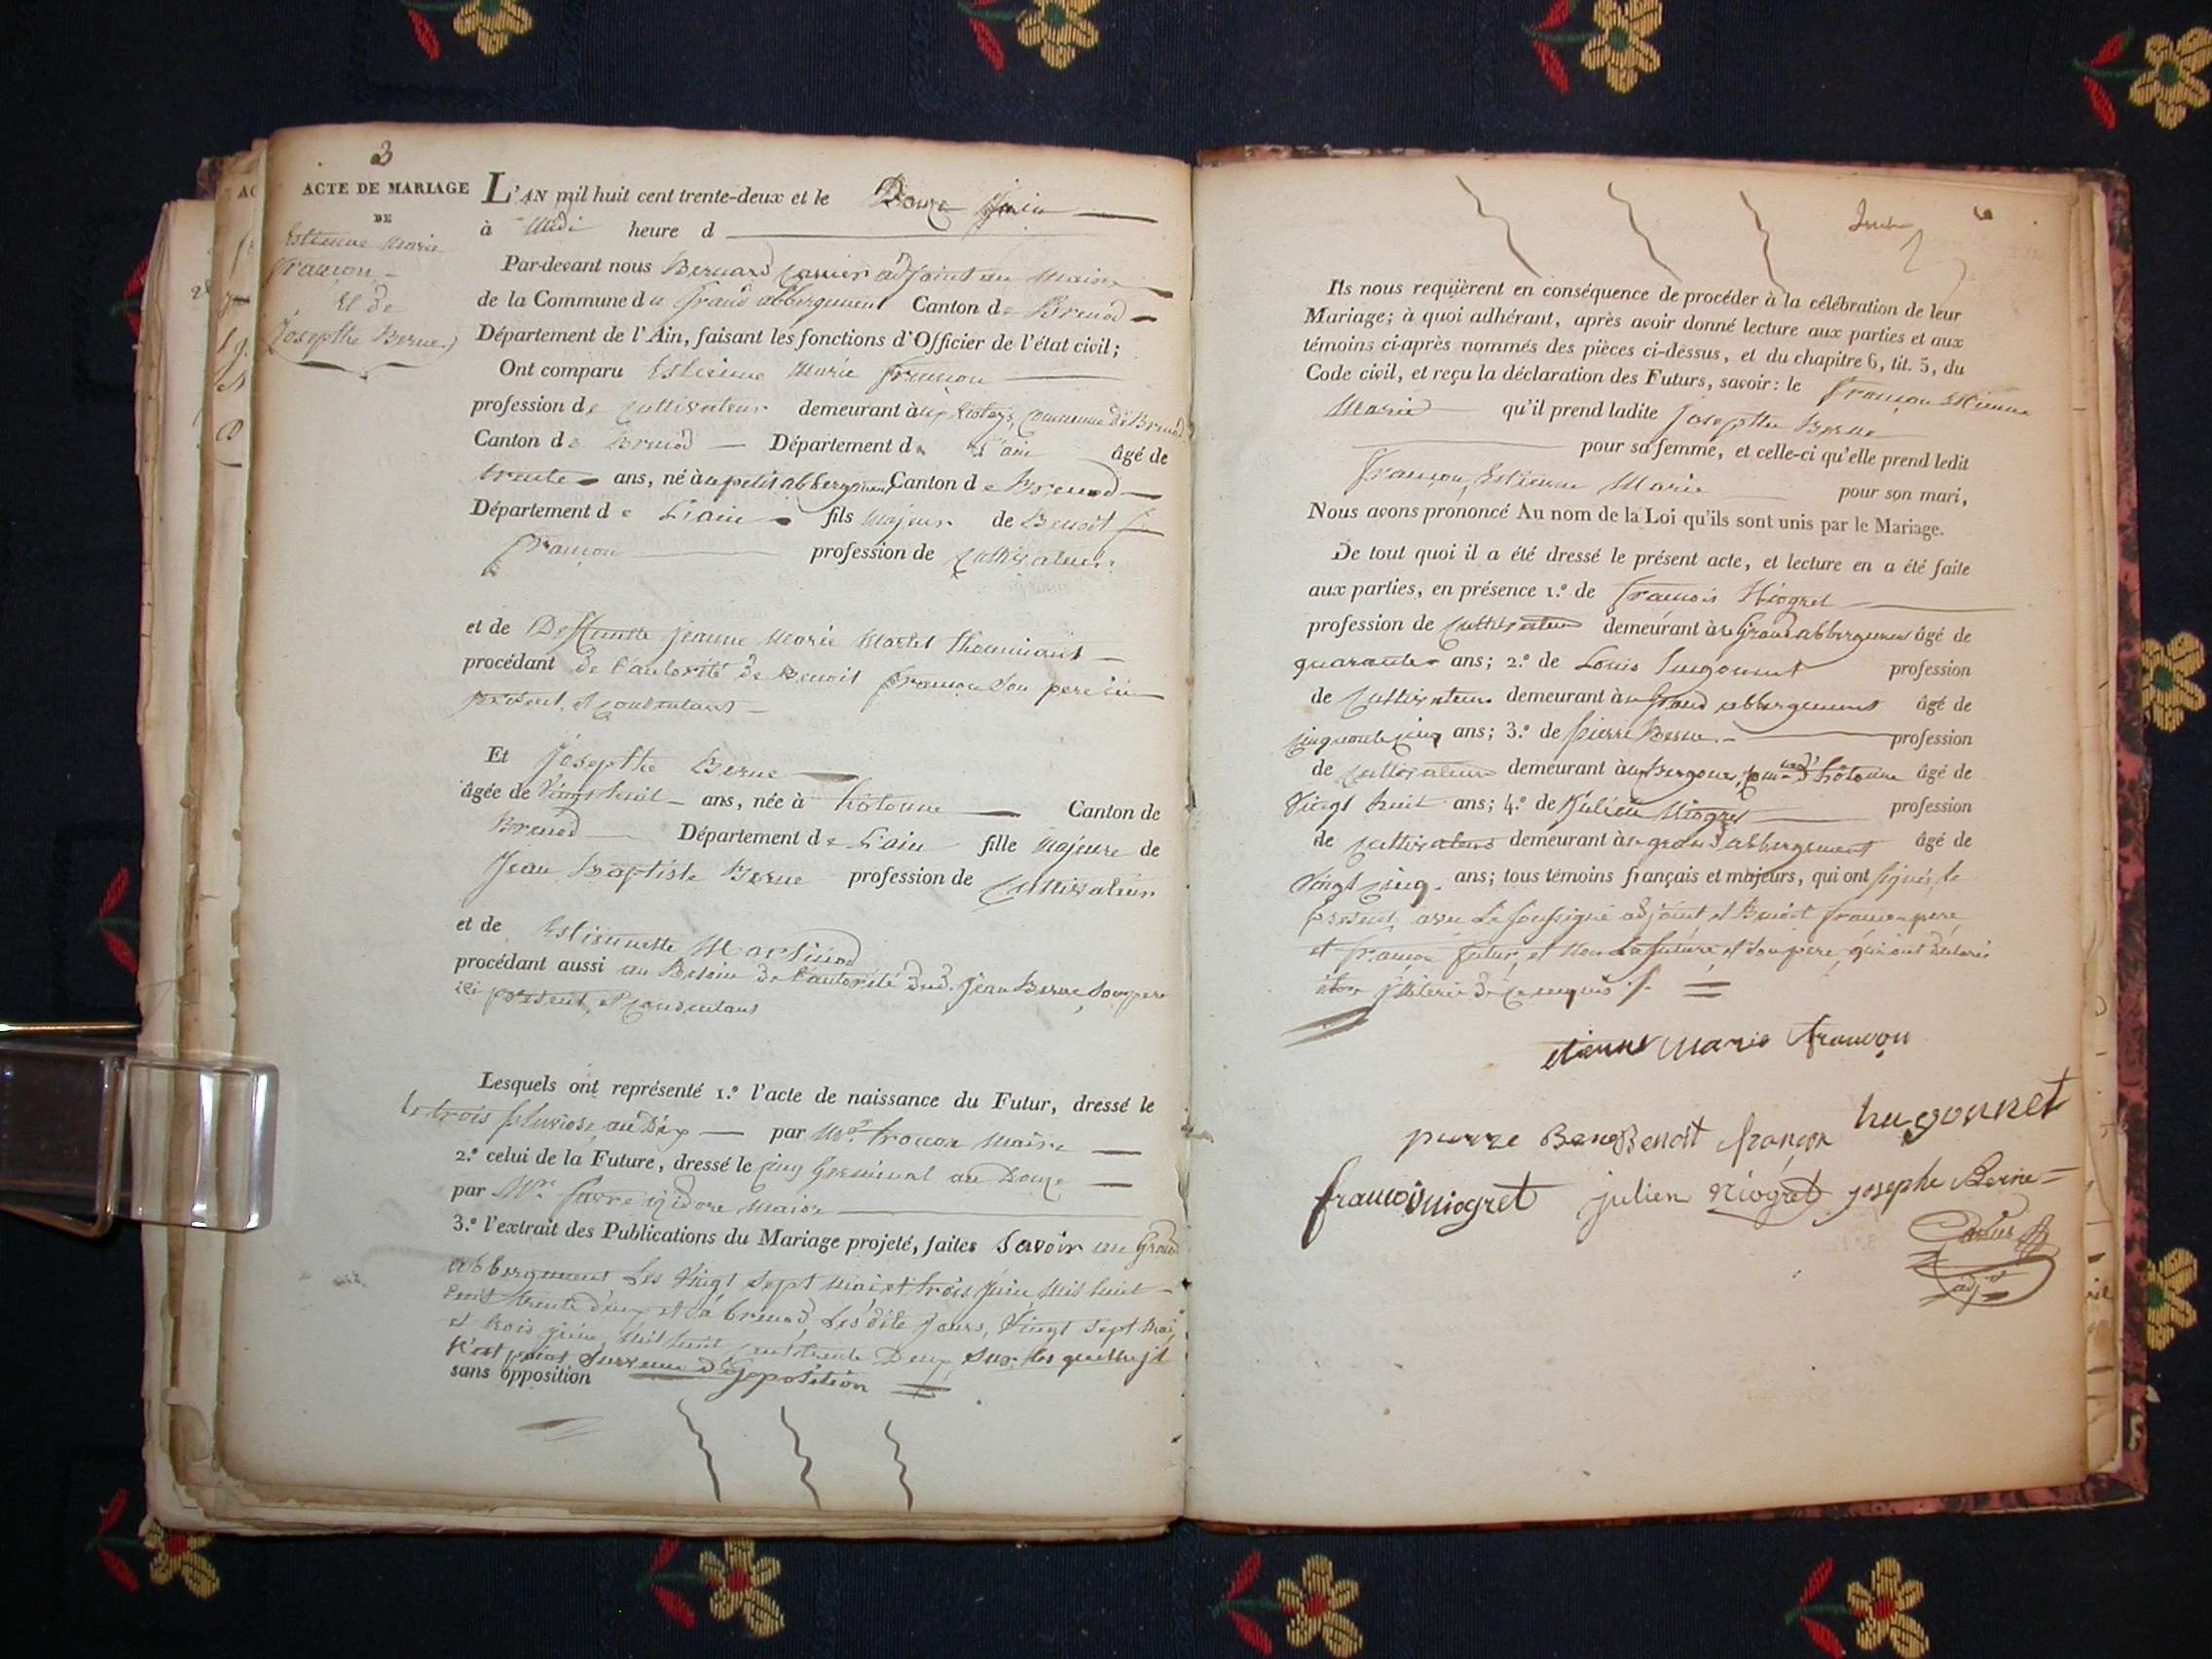 3
ACTE DE MARIAGE
DE
Estienne Marie
françon
Et de
Josepthe Berne
L'AN mil huit cent trente-deux et le Douze Juin
à Midi heure d
Par-devant nous Bernard Carrier adjoint au Maire
de la Commune du Grand abbergement Canton de Brenod
Département de l'Ain, faisant les fonctions d'Officier de l'état civil;
Ont comparu Estienne Marie françon
profession de Cultivateur demeurant à Commune de Brenod
Canton de Brenod Département de L'ain âgé de
trente ans, né au petit abbergement Canton de Brenod
Département de L'ain fils majeur de Benoit
françon profession de Cultivateur
et de Deffunte Jeanne Marie
procédant de l'autorité de Benoit françon Son pere ici
présent, et Consentant
Et Josepthe Berne
âgée de Vingt huit ans, née à hotonne Canton de
Brenod Département de L'ain fille majeure de
Jean Baptiste Berne profession de Cultivateur
et de Estiennette
procédant aussi au Besoin de l'autorité dud. Jean Berne, Son pere
ici présent, et Consentant
Lesquels ont représenté 1.º l'acte de naissance du Futur, dressé le
le trois pluviose an Dix par Mr. Maire
2.º celui de la Future, dressé le cinq Germinal an Douze
par Mr. favre izidore Maire
3.º l'extrait des Publications du Mariage projeté, faites Savoir au Grand
abbergement Les Vingt Sept mai et trois Juin Mil huit
Cent trente deux et à brenod, Les dits Jours, Vingt Sept Mai,
et trois juin, Mil huit Cent trente Deux, Sur les quelles il
n'est point Survenu d'opposition
sans opposition
Ils nous requièrent en conséquence de procéder à la célébration de leur
Mariage; à quoi adhérant, après avoir donné lecture aux parties et aux
témoins ci-après nommés des pièces ci-dessus, et du chapitre 6, tit. 5, du
Code civil, et reçu la déclaration des Futurs, savoir: le françon Estienne
Marie qu'il prend ladite Josepthe Berne
pour sa femme, et celle-ci qu'elle prend ledit
françon, Estienne Marie pour son mari,
Nous avons prononcé Au nom de la Loi qu'ils sont unis par le Mariage.
De tout quoi il a été dressé le présent acte, et lecture en a été faite
aux parties, en présence 1.º de francois Niogret
profession de Cultivateur demeurant au Grand abbergement âgé de
quarante ans; 2.º de Louis hugonnet profession
de Cultivateur demeurant au Grand abbergement âgé de
Cinquante cinq ans; 3.º de pierre Berne profession
de Cultivateur demeurant à d'hotonne âgé de
Vingt huit ans; 4.º de Julien Niogret profession
de Cultivateur demeurant au grand abbergement âgé de
Vingt cinq ans; tous témoins français et majeurs, qui ont signés le
présent, avec Le soussigné adjoint et Benoit françon pere
et françon futur, et non La future et Son pere, qui ont déclaré
de ce enquis
etienne marie françon
hugonnet
pierre Berne Benoit françon
francois niogret julien Niogret josephe Berne
Carrier
adj.t